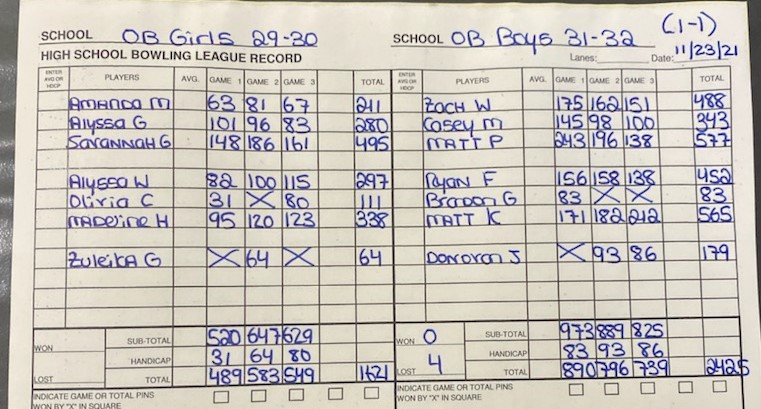 SCHOOL OB Girls 29-30 SCHOOL OB Boys 31-32 (1-1)
HIGH SCHOOL BOWLING LEAGUE RECORD Lanes: Date: 11/23/21
ENTER AVG OR HDCP PLAYERS AVG. GAME 1 GAME 2 GAME 3 TOTAL ENTER AVG OR HDCP PLAYERS AVG. GAME 1 GAME 2 GAME 3 TOTAL
Amanda M 63 81 67 211 Zach W 175 162 151 488
Alyssa G 101 96 83 280 Casey M 145 98 100 343
Savannah G 148 186 161 495 Matt P 243 196 138 577
Alyssa W 82 100 115 297 Ryan F 156 158 138 452
Olivia C 31 X 80 111 Brandon G 83 X X 83
Madeline H 95 120 123 338 Matt K 171 182 212 565
Zuleika G X 64 X 64 Donovan J X 93 86 179
WON SUB-TOTAL 520 647 629 WON 0 SUB-TOTAL 973 889 825
HANDICAP 31 64 80 HANDICAP 83 93 86
LOST TOTAL 489 583 549 1621 LOST 4 TOTAL 890 796 739 2425
INDICATE GAME OR TOTAL PINS INDICATE GAME OR TOTAL PINS
WON BY "X" IN SQUARE WON BY "X" IN SQUARE